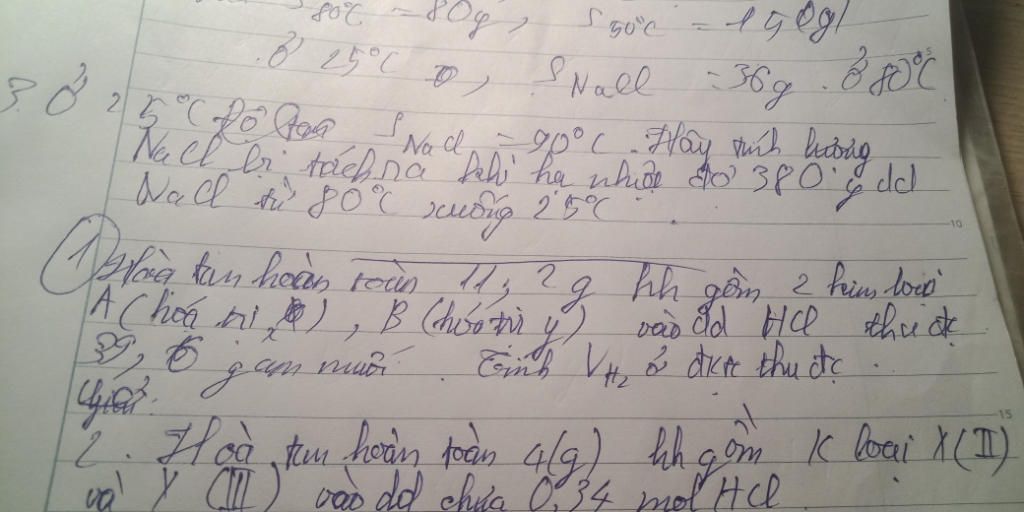 S 80°C = 80g, S 50°C = 150g
Ở 25°C, S NaCl = 36g. Ở 80°C
3. Ở 25°C Độ tan S NaCl = 90°C. Hãy tính lượng
NaCl bị tách ra khi hạ nhiệt độ 380 g dd
NaCl từ 80°C xuống 25°C.
1 Hòa tan hoàn toàn 11,2g hh gồm 2 kim loại
A (hoá trị x), B (hoá trị y) vào dd HCl thu đc
39,6 gam muối. Tính V H2 ở đktc thu đc.
Giải:
2. Hoà tan hoàn toàn 4(g) hh gồm K loại X(II)
và Y (III) vào dd chứa 0,34 mol HCl